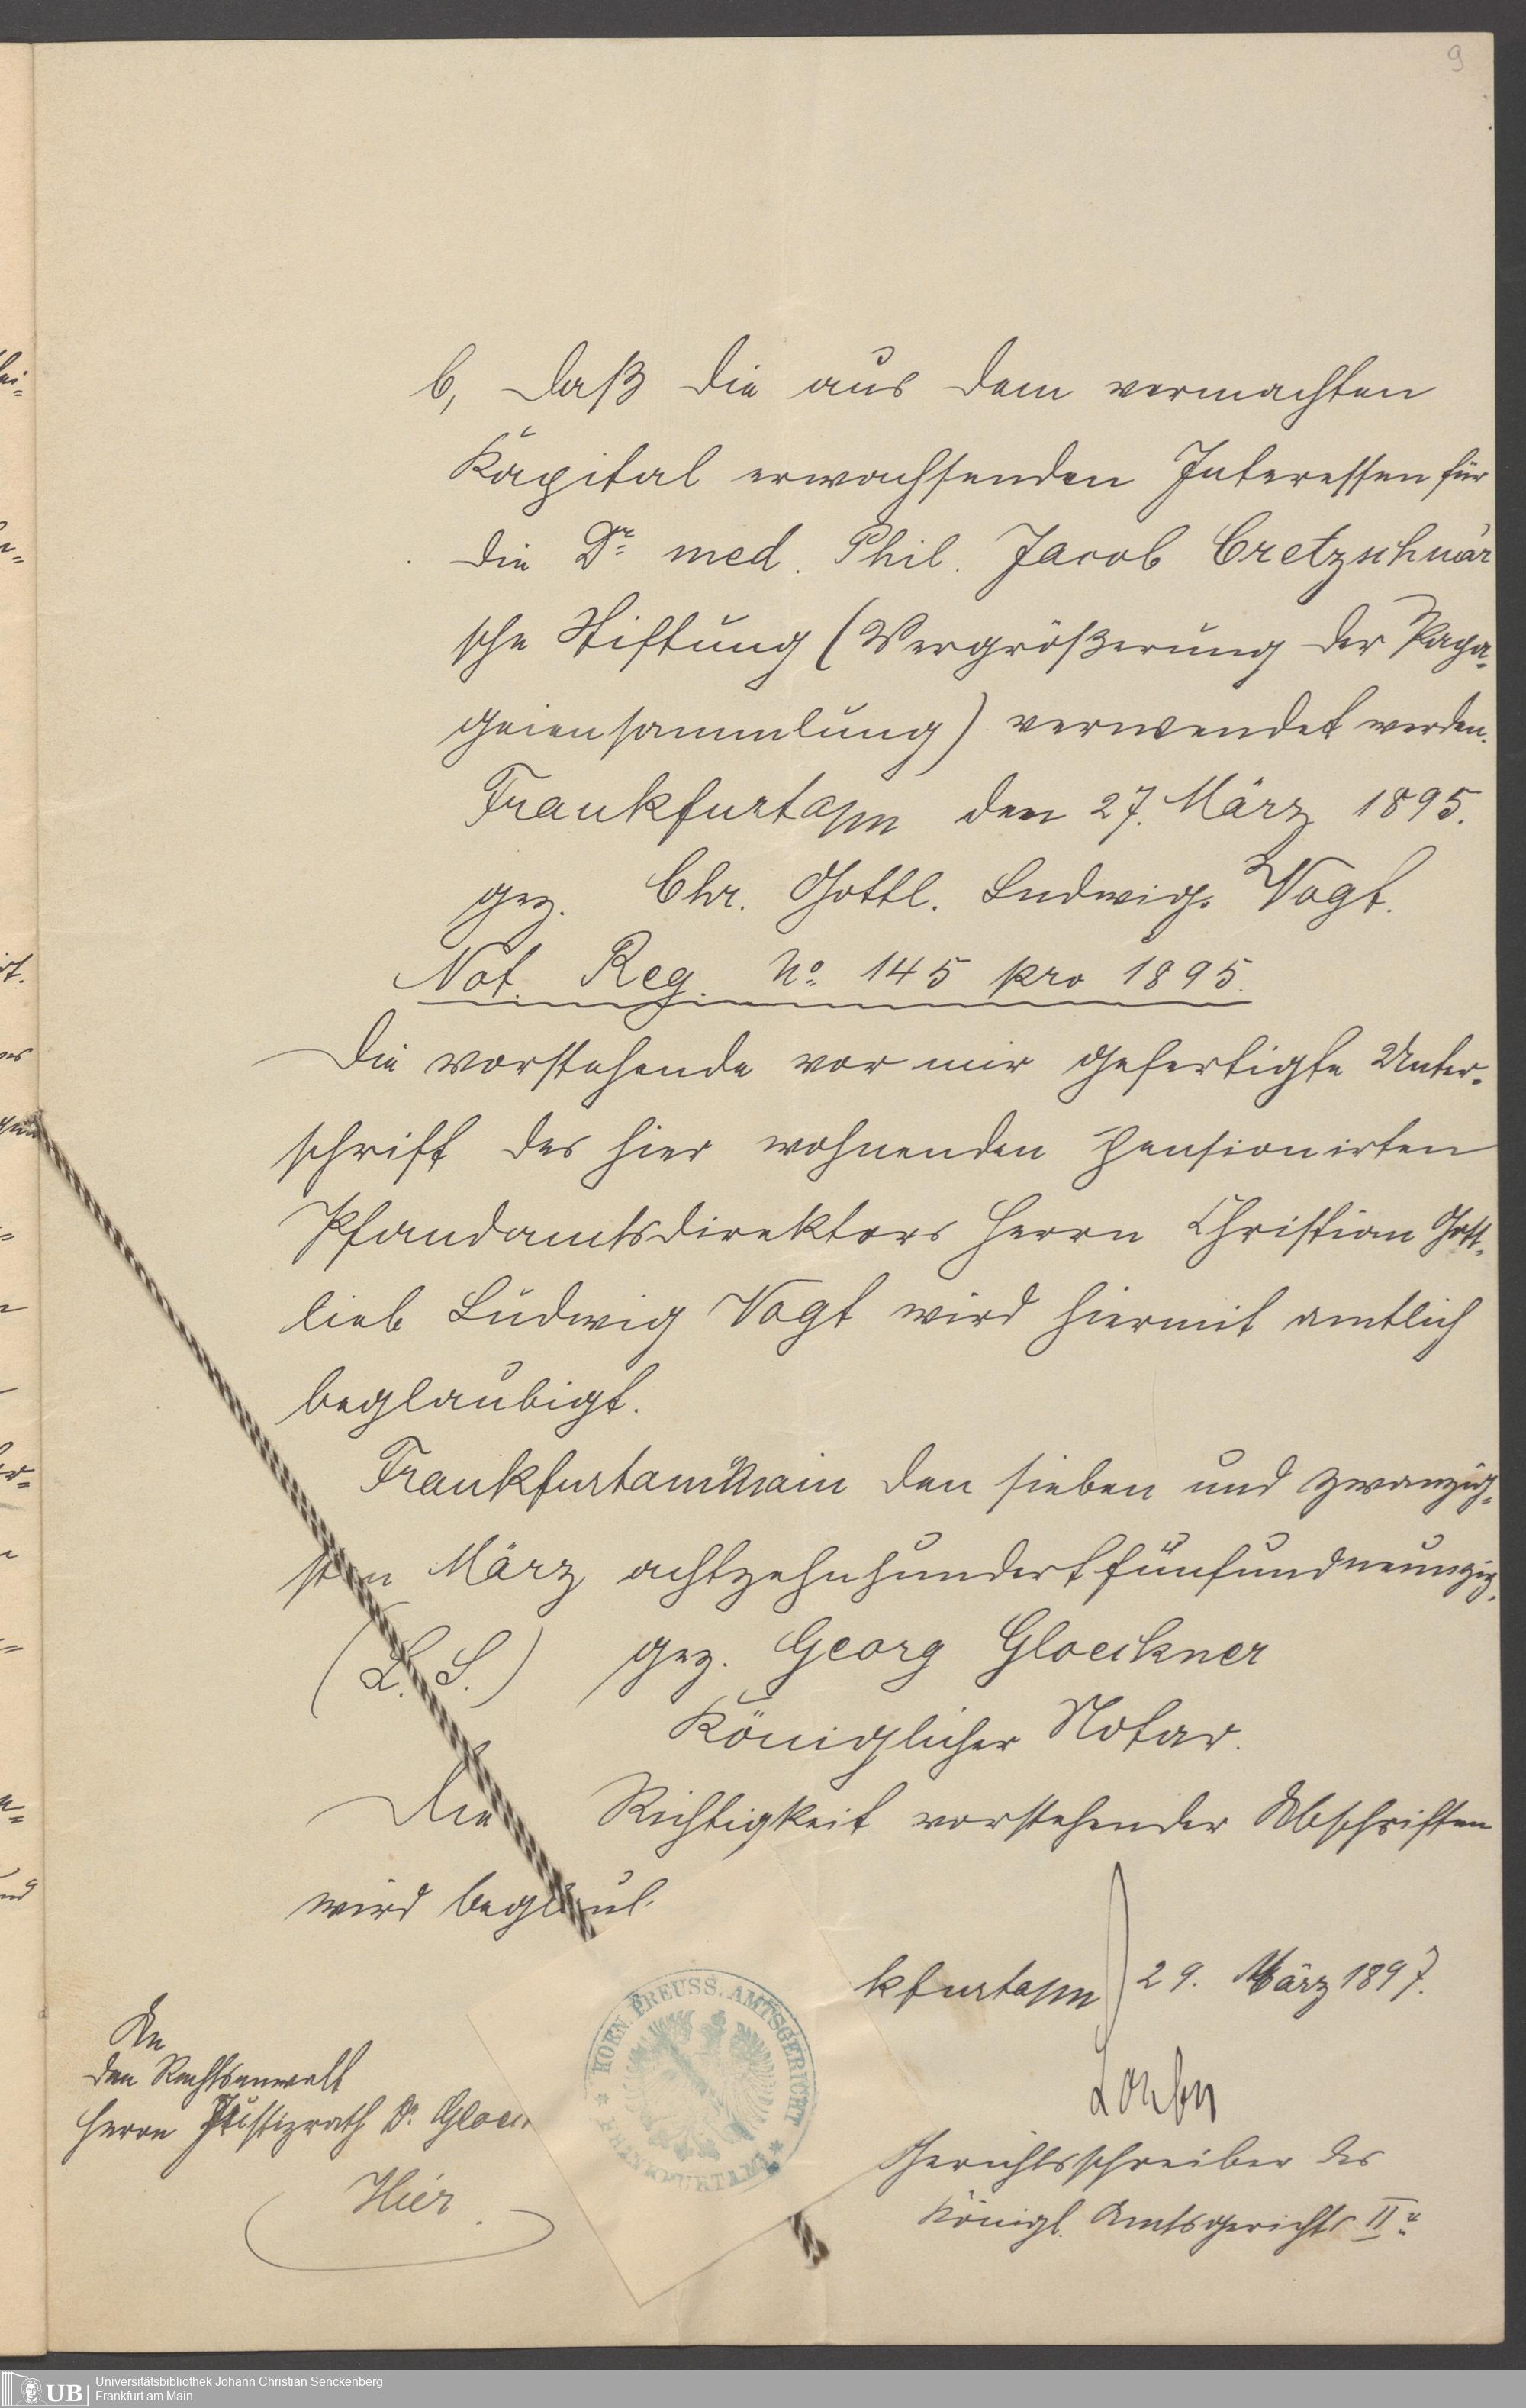 9
b, daß die aus dem vermachten
Kapital erwachsenden Interessen für
die Dr. med. Phil. Jacob Cretzschmär
sche Stiftung (Vergrößerung der Papa-
geiensammlung) verwendet werden.
Frankfurt a/m den 27. März 1895.
gez. Chr. Gottl. Ludwig Vogt.
Not. Reg. No. 145 pro 1895.
Die vorstehende vor mir gefertigte Unter-
schrift des hier wohnenden pensionirten
Pfandamtsdirektors Herrn Christian Gott-
lieb Ludwig Vogt wird hiermit amtlich
beglaubigt.
Frankfurt am Main den sieben und zwanzig-
sten März achtzehnhundertfünfundneunzig.
(L. S.) gez. Georg Gloeckner
Königlicher Notar.
Die Richtigkeit vorstehender Abschriften
wird beglaub
kfurt a/m 29. März 1897.
Gerichtsschreiber des
Königl. Amtsgerichts II
An
den Rechtsanwalt
Herrn Justizrath Dr. Gloe
Hier.
KOEN. PREUSS. AMTSGERICHT
FRANKFURT A/M
UB
Universitätsbibliothek Johann Christian Senckenberg
Frankfurt am Main